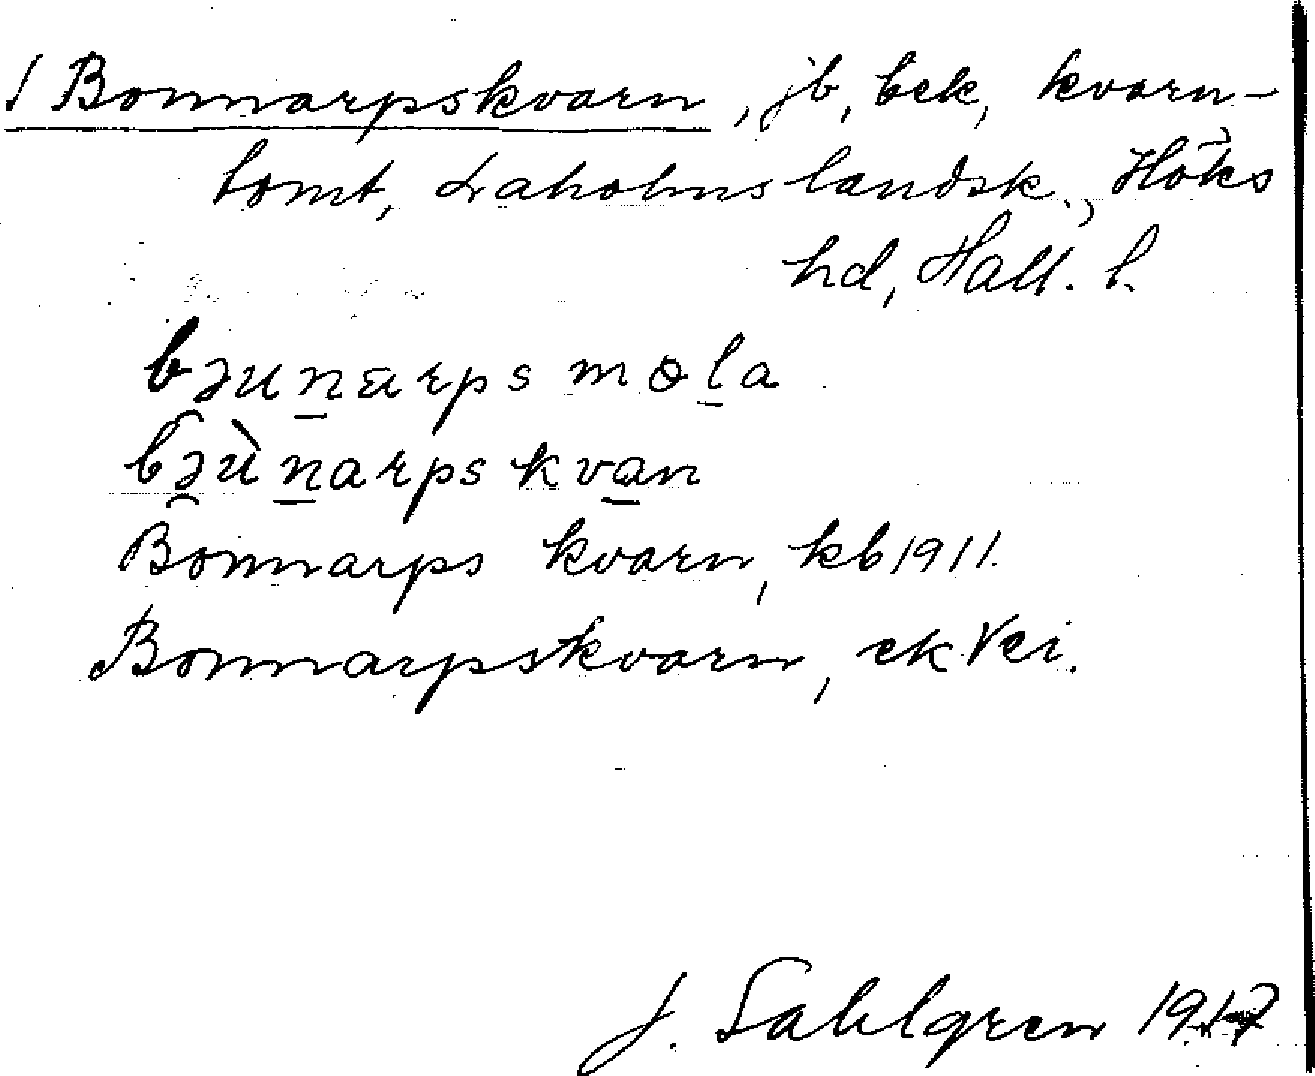 / Bonnarpskvarn, jb, bek, kvarn-
tomt, Laholms landsk., Höks
hd, Hall. l.
bəu̯n̲arps møl̲a
bə̯ùn̲arpskva̲n
Bonnarps kvarn, kb 1911.
Bonnarpskvarn, ek Vei.
J. Sahlgren 1917